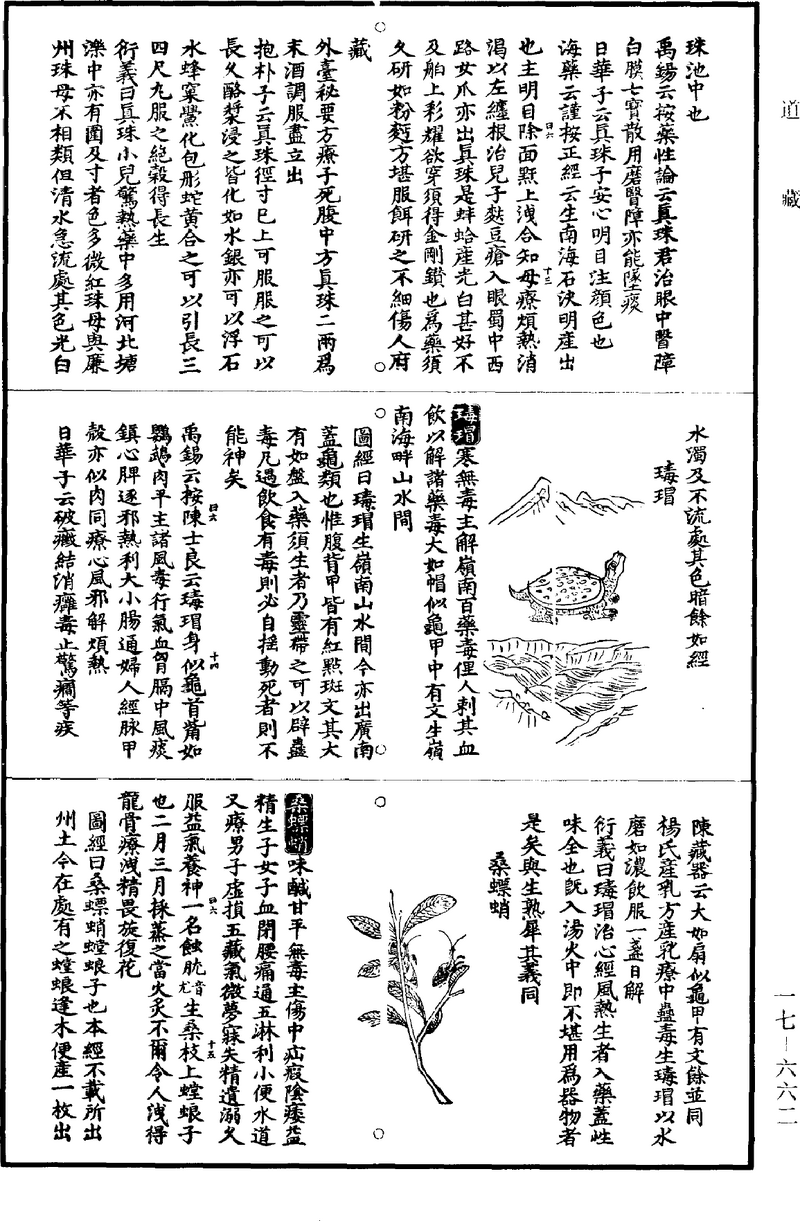 道藏
珠池中也
禹錫云按藥性論云真珠君治眼中瞖障
白膜七寶散用磨瞖障亦能墜痰
日華子云真珠子安心明目注顔色也
海藥云謹按正經云生南海石決明産出
也主明目除面䵟止洩合知母療煩熱消
渇以左纏根治兒子麩豆瘡入眼蜀中西
路女爪亦出真珠是蚌蛤産光白甚好不
及舶上彩耀欲穿須得金剛鑽也爲藥須
久研如粉麪方堪服餌研之不細傷人府
藏
外臺秘要方療子死腹中方真珠二兩爲
末酒調服盡立出
抱朴子云真珠徑寸已上可服服之可以
長久酪漿浸之皆化如水銀亦可以浮石
水蜂窠鱟化包形蛇黄合之可以引長三
四尺丸服之絶穀得長生
衍義曰真珠小兒驚熱藥中多用河北塘
濼中亦有圍及寸者色多微紅珠母與廉
州珠母不相類但清水急流處其色光白
水濁及不流處其色暗餘如經
瑇瑁
瑇瑁寒無毒主解嶺南百藥毒俚人刺其血
飲以解諸藥毒大如帽似龜甲中有文生嶺
南海畔山水間
圖經曰瑇瑁生嶺南山水間今亦出廣南
蓋龜類也惟腹背甲皆有紅點斑文其大
有如盤入藥須生者乃靈帶之可以辟蠱
毒凡遇飲食有毒則必自揺動死者則不
能神矣
禹錫云按陳士良云瑇瑁身似龜首觜如
鸚鵡肉平主諸風毒行氣血胷膈中風痰
鎮心脾逐邪熱利大小腸通婦人經脉甲
殼亦似肉同療心風邪解煩熱
日華子云破癥結消癰毒止驚癇等疾
陳藏器云大如扇似龜甲有文餘並同
楊氏産乳方産乳療中蠱毒生瑇瑁以水
磨如濃飲服一盞日解
衍義曰瑇瑁治心經風熱生者入藥蓋性
味全也既入湯火中即不堪用爲器物者
是矣與生熟犀其義同
桑螵蛸
桑螵蛸味鹹甘平無毒主傷中疝瘕陰痿益
精生子女子血閉腰痛通五淋利小便水道
又療男子虚損五藏氣微夢寐失精遺溺久
服益氣養神一名蝕肬音尤生桑枝上螳蜋子
也二月三月採蒸之當火炙不爾令人洩得
龍骨療洩精畏旋復花
圖經曰桑螵蛸螳蜋子也本經不載所出
州土今在處有之螳蜋逢木便産一枚出
一七—六六二